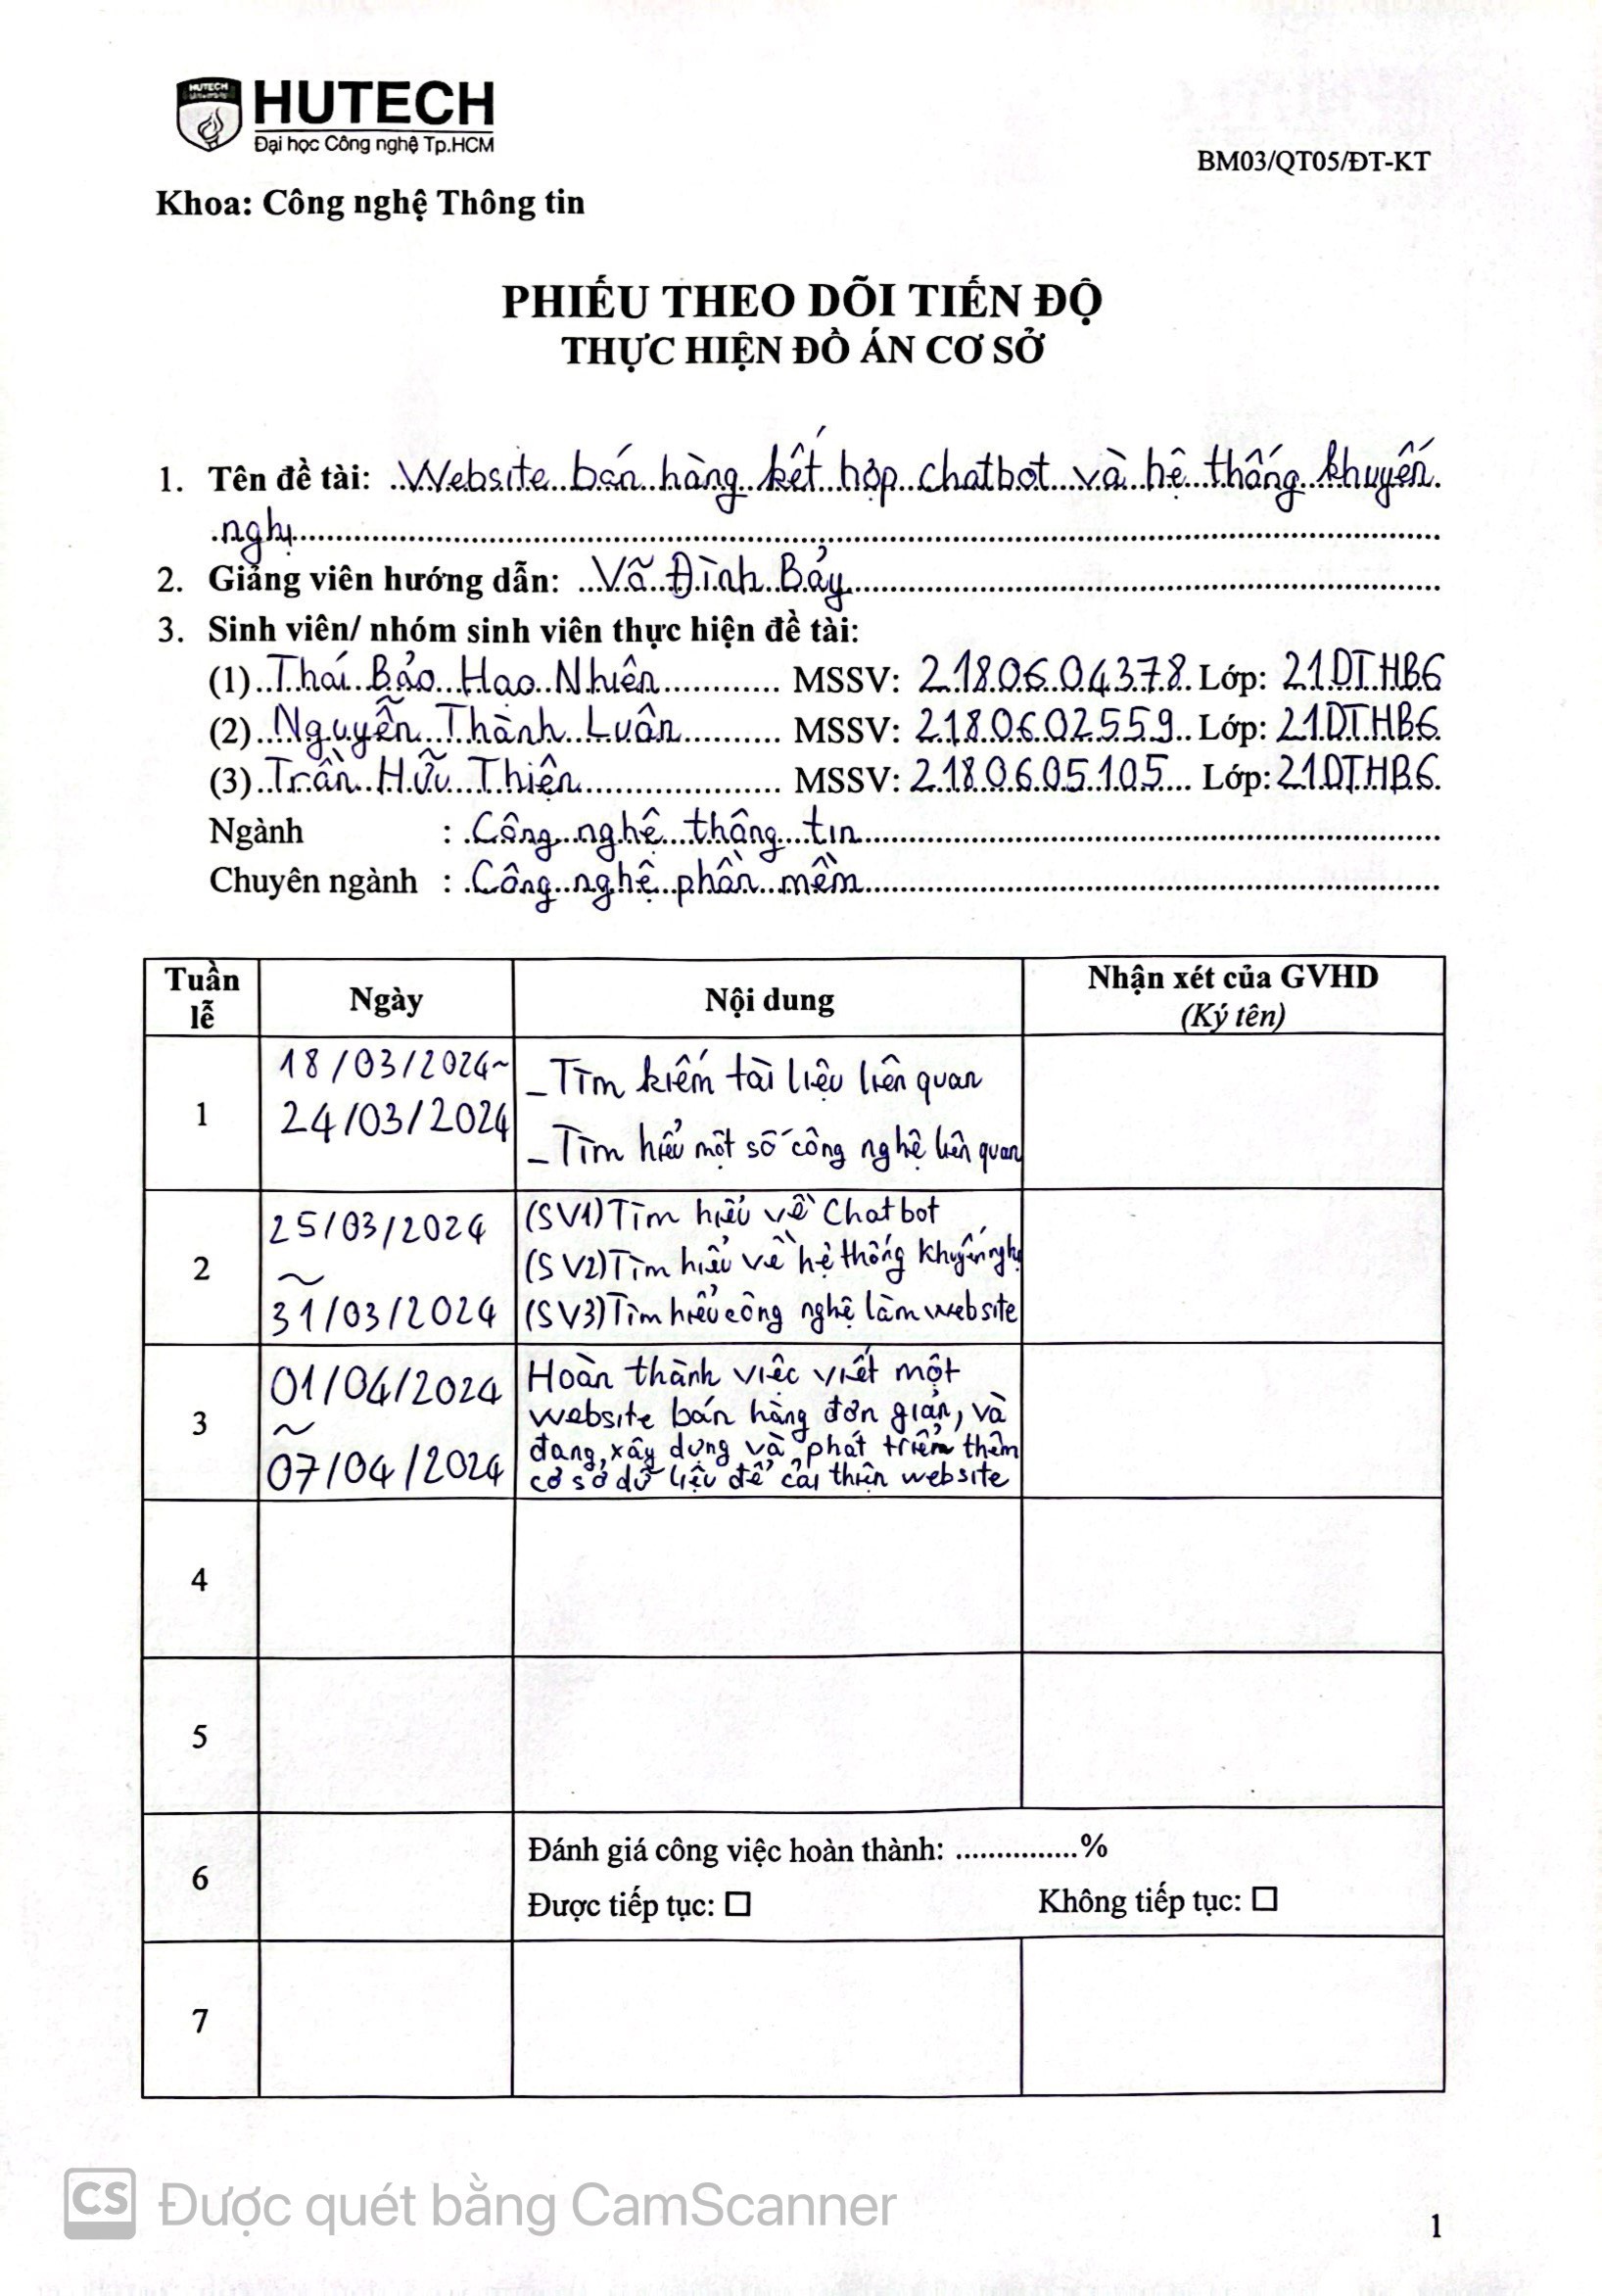 HUTECH
HUTECH
Đại học Công nghệ Tp.HCM
BM03/QT05/ĐT-KT
Khoa: Công nghệ Thông tin
PHIẾU THEO DÕI TIẾN ĐỘ
THỰC HIỆN ĐỒ ÁN CƠ SỞ
1. Tên đề tài: Website bán hàng kết hợp chatbot và hệ thống khuyến
nghị
2. Giảng viên hướng dẫn: Võ Đình Bảy
3. Sinh viên/ nhóm sinh viên thực hiện đề tài:
(1) Thái Bảo Hạo Nhiên MSSV: 2180604378 Lớp: 21DTHB6
(2) Nguyễn Thành Luân MSSV: 2180602559 Lớp: 21DTHB6
(3) Trần Hữu Thiện MSSV: 2180605105 Lớp: 21DTHB6
Ngành : Công nghệ thông tin
Chuyên ngành : Công nghệ phần mềm
Tuần lễ Ngày Nội dung Nhận xét của GVHD
(Ký tên)
18/03/2024~ - Tìm kiếm tài liệu liên quan
1 24/03/2024 - Tìm hiểu một số công nghệ liên quan
25/03/2024 (SV1) Tìm hiểu về Chatbot
2 ~ (SV2) Tìm hiểu về hệ thống khuyến nghị
31/03/2024 (SV3) Tìm hiểu công nghệ làm website
01/04/2024 Hoàn thành việc viết một
3 ~ website bán hàng đơn giản, và
đang xây dựng và phát triển thêm
07/04/2024 cơ sở dữ liệu để cải thiện website
4
5
Đánh giá công việc hoàn thành: ..............%
6
Được tiếp tục: ☐ Không tiếp tục: ☐
7
CS Được quét bằng CamScanner
1